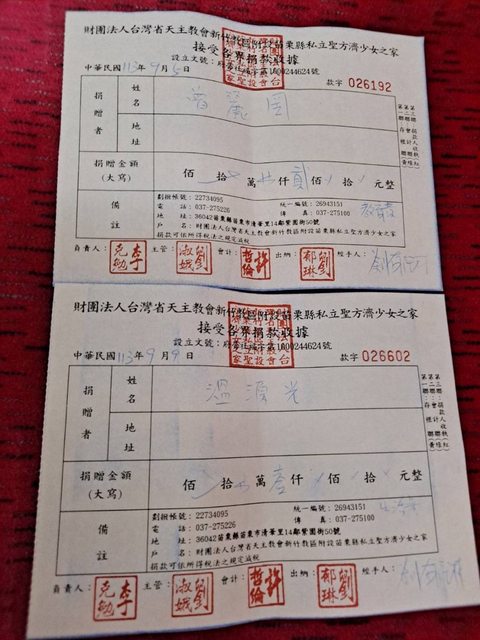 財團法人台灣省天主教會新竹教區附設苗栗縣私立聖方濟少女之家
接受各界捐款收據
中華民國113年9月5日
款字 026192
捐贈者
姓名
地址
捐贈金額
(大寫)
佰 拾 萬 仟 貳 佰 拾 元整
備註
劃撥帳號: 22734095 統一編號: 26943151
電 話: 037-275226 傳 真: 037-275100
地 址: 36042苗栗縣苗栗市清華里14鄰紫園街50號
戶 名: 財團法人台灣省天主教會新竹教區附設苗栗縣私立聖方濟少女之家
捐款可依所得稅法之規定減稅
負責人: 主管: 會計: 出納: 經手人:
財團法人台灣省天主教會新竹教區附設苗栗縣私立聖方濟少女之家
接受各界捐款收據
中華民國113年9月9日
款字 026602
捐贈者
姓名
溫源光
地址
捐贈金額
(大寫)
佰 拾 萬 壹 仟 佰 拾 元整
備註
劃撥帳號: 22734095 統一編號: 26943151
電 話: 037-275226 傳 真: 037-275100
地 址: 36042苗栗縣苗栗市清華里14鄰紫園街50號
戶 名: 財團法人台灣省天主教會新竹教區附設苗栗縣私立聖方濟少女之家
捐款可依所得稅法之規定減稅
負責人: 主管: 會計: 出納: 經手人: